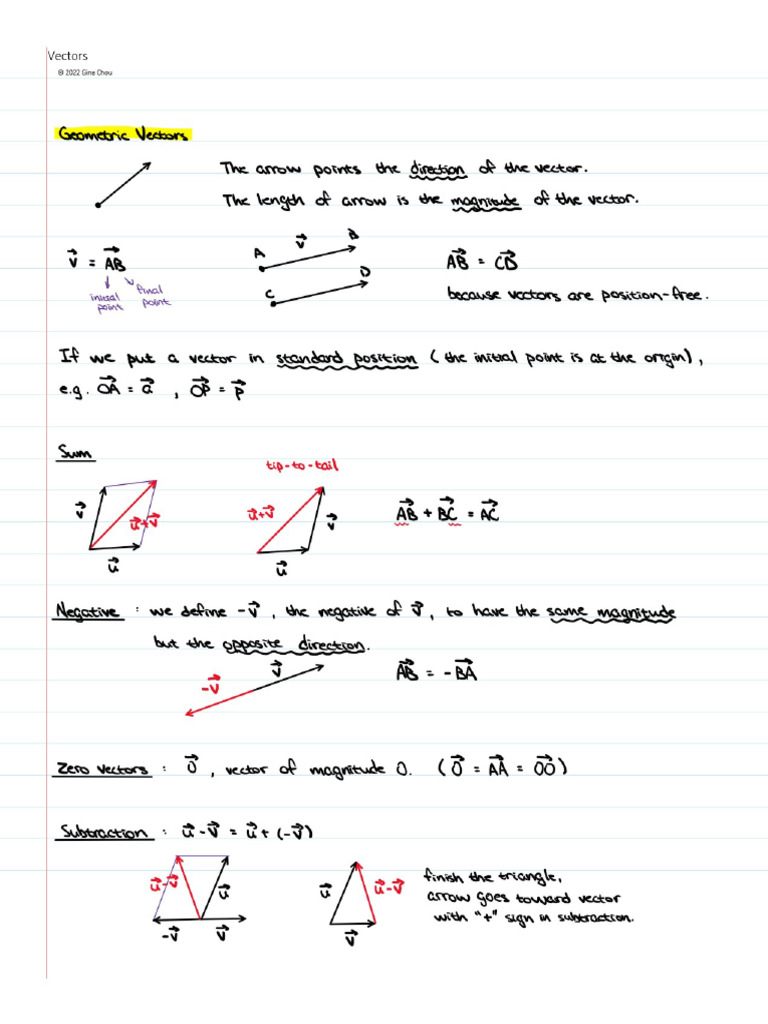 Vectors
© 2022 Gine Chou
Geometric Vectors
The arrow points the direction of the vector.
The length of arrow is the magnitude of the vector.
v⃗ = A⃗B⃗
initial point
final point
A v⃗ B
C D
A⃗B⃗ = C⃗D⃗
because vectors are position-free.
If we put a vector in standard position (the initial point is at the origin),
e.g. O⃗A⃗ = a⃗ , O⃗P⃗ = p⃗
Sum
tip-to-tail
v⃗ u⃗+v⃗ u⃗
u⃗+v⃗ v⃗ u⃗
A⃗B⃗ + B⃗C⃗ = A⃗C⃗
Negative : we define -v⃗ , the negative of v⃗, to have the same magnitude
but the opposite direction.
-v⃗ v⃗
A⃗B⃗ = -B⃗A⃗
Zero vectors : 0⃗ , vector of magnitude 0. (0⃗ = A⃗A⃗ = O⃗O⃗)
Subtraction : u⃗-v⃗ = u⃗+(-v⃗)
u⃗-v⃗ u⃗
-v⃗ v⃗
u⃗ u⃗-v⃗
v⃗
finish the triangle,
arrow goes toward vector
with "+" sign in subtraction.